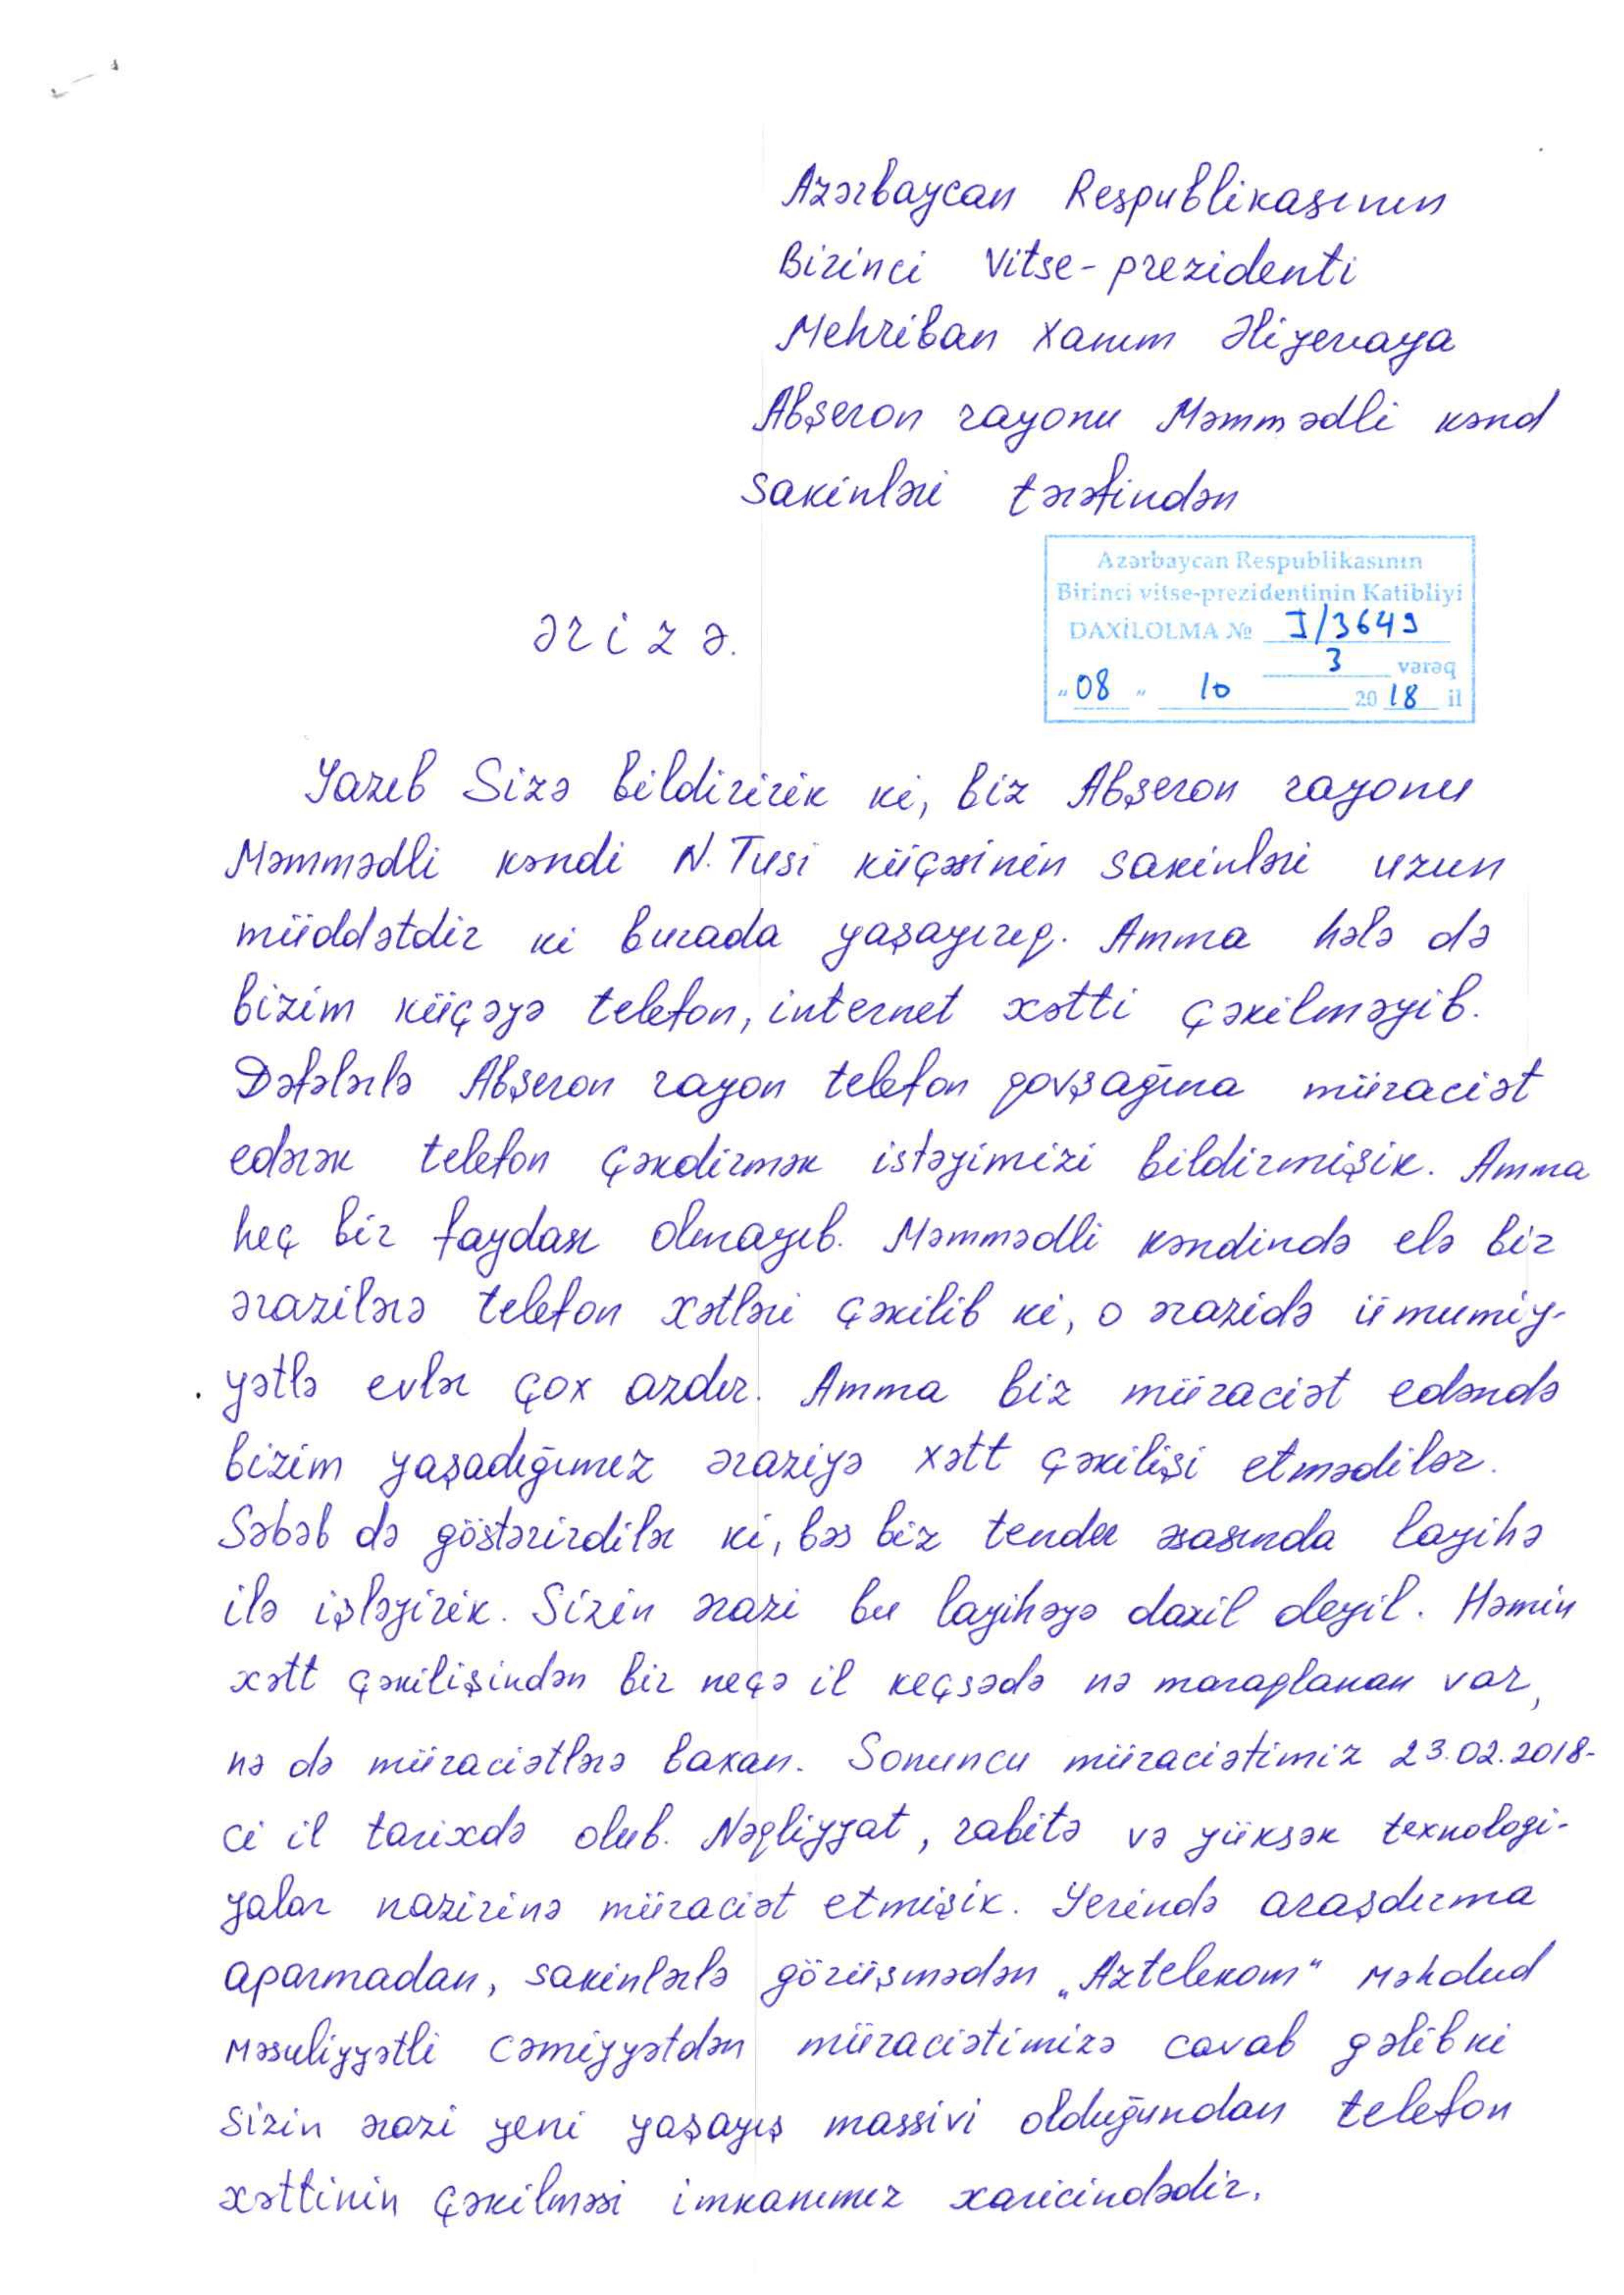 Azərbaycan Respublikasının
Birinci Vitse-prezidenti
Mehriban Xanım Əliyevaya
Abşeron rayonu Məmmədli kənd
sakinləri tərəfindən
Azərbaycan Respublikasının
Birinci vitse-prezidentinin Katibliyi
DAXİLOLMA № J/3649
3 vərəq
"08" 10 2018 il
ərizə.
Yazıb Sizə bildiririk ki, biz Abşeron rayonu
Məmmədli kəndi N.Tusi küçəsinin sakinləri uzun
müddətdir ki burada yaşayırıq. Amma hələ də
bizim küçəyə telefon, internet xətti çəkilməyib.
Dəfələrlə Abşeron rayon telefon qovşağına müraciət
edərək telefon çəkdirmək istəyimizi bildirmişik. Amma
heç bir faydası olmayıb. Məmmədli kəndində elə bir
ərazilərə telefon xətləri çəkilib ki, o ərazidə ümumiy-
yətlə evlər çox azdır. Amma biz müraciət edəndə
bizim yaşadığımız əraziyə xətt çəkilişi etmədilər.
Səbəb də göstərirdilər ki, bəs biz tender əsasında layihə
ilə işləyirik. Sizin ərazi bu layihəyə daxil deyil. Həmin
xətt çəkilişindən bir neçə il keçsədə nə maraqlanan var,
nə də müraciətlərə baxan. Sonuncu müraciətimiz 23.02.2018-
ci il tarixdə olub. Nəqliyyat, rabitə və yüksək texnologi-
yalar nazirinə müraciət etmişik. Yerində araşdırma
aparmadan, sakinlərlə görüşmədən „Aztelekom" Məhdud
Məsuliyyətli Cəmiyyətdən müraciətimizə cavab gəlibki
Sizin ərazi yeni yaşayış massivi olduğundan telefon
xəttinin çəkilməsi imkanımız xaricindədir.